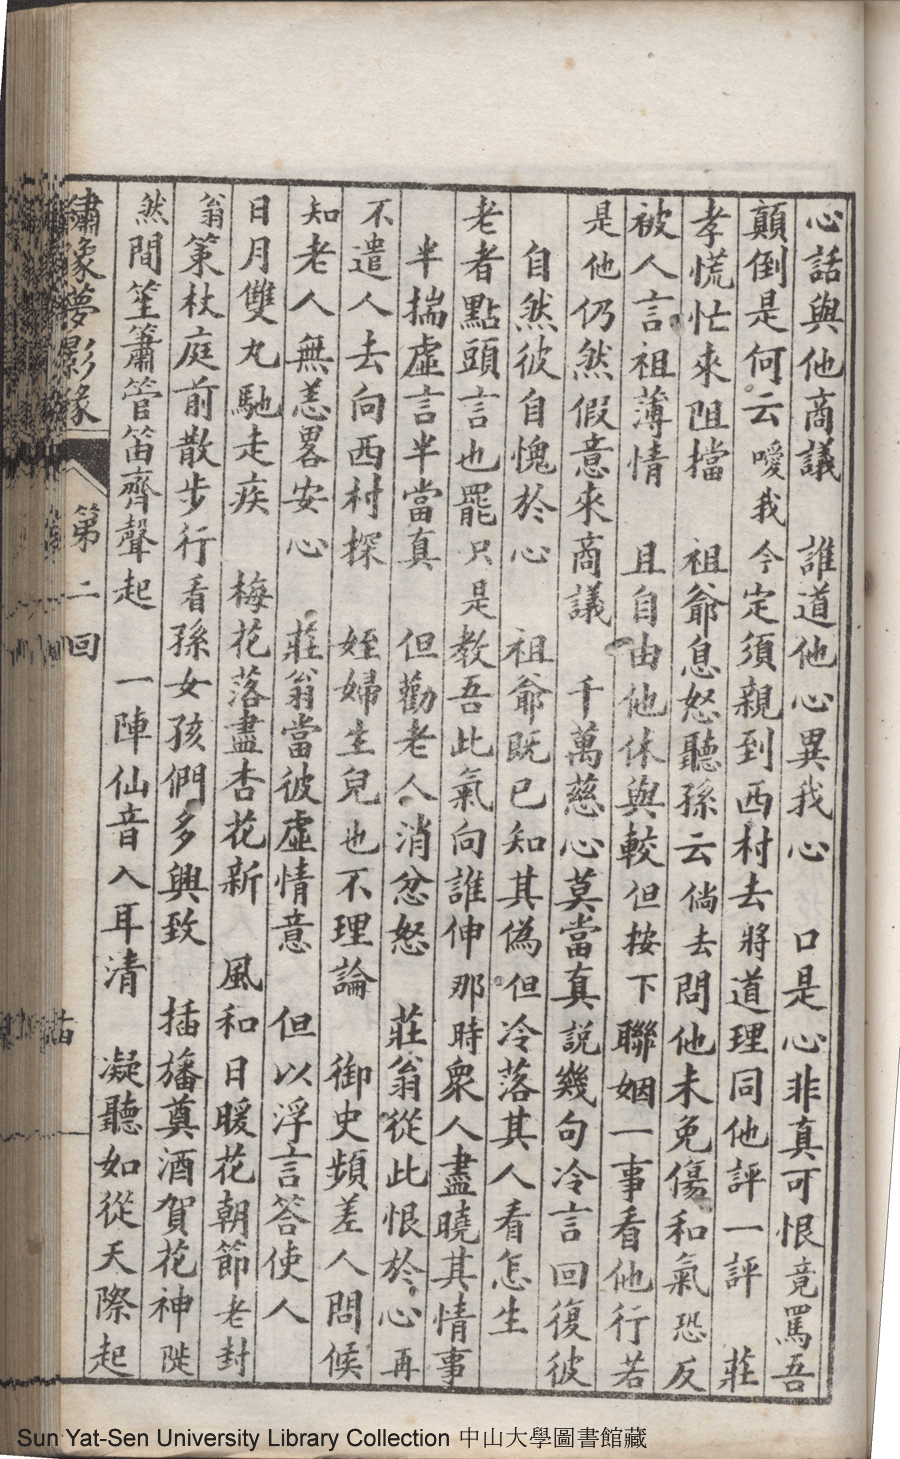 心話與他商議　誰道他心異我心　口是心非真可恨竟罵吾
顛倒是何云噯我今定須親到西村去將道理同他評一評　莊
孝慌忙來阻擋　祖爺息怒聽孫云倘去問他未免傷和氣恐反
被人言祖薄情　且自由他休與較但按下聯姻一事看他行若
是他仍然假意來商議　千萬慈心莫當真說幾句冷言回復彼
自然彼自愧於心　祖爺既已知其偽但冷落其人看怎生
老者點頭言也罷只是教吾此氣向誰伸那時衆人盡曉其情事
半揣虛言半當真　但勸老人消忿怒　莊翁從此恨於心再
不遣人去向西村探　姪婦生兒也不理論　御史頻差人問候
知老人無恙畧安心　莊翁當彼虛情意　但以浮言答使人
日月雙丸馳走疾　梅花落盡杏花新　風和日暖花朝節老封
翁策杖庭前散步行看孫女孩們多興致　插旛奠酒賀花神陡
然間笙簫管笛齊聲起　一陣仙音入耳清　凝聽如從天際起
繡像夢影緣　第二回
Sun Yat-Sen University Library Collection 中山大學圖書館藏